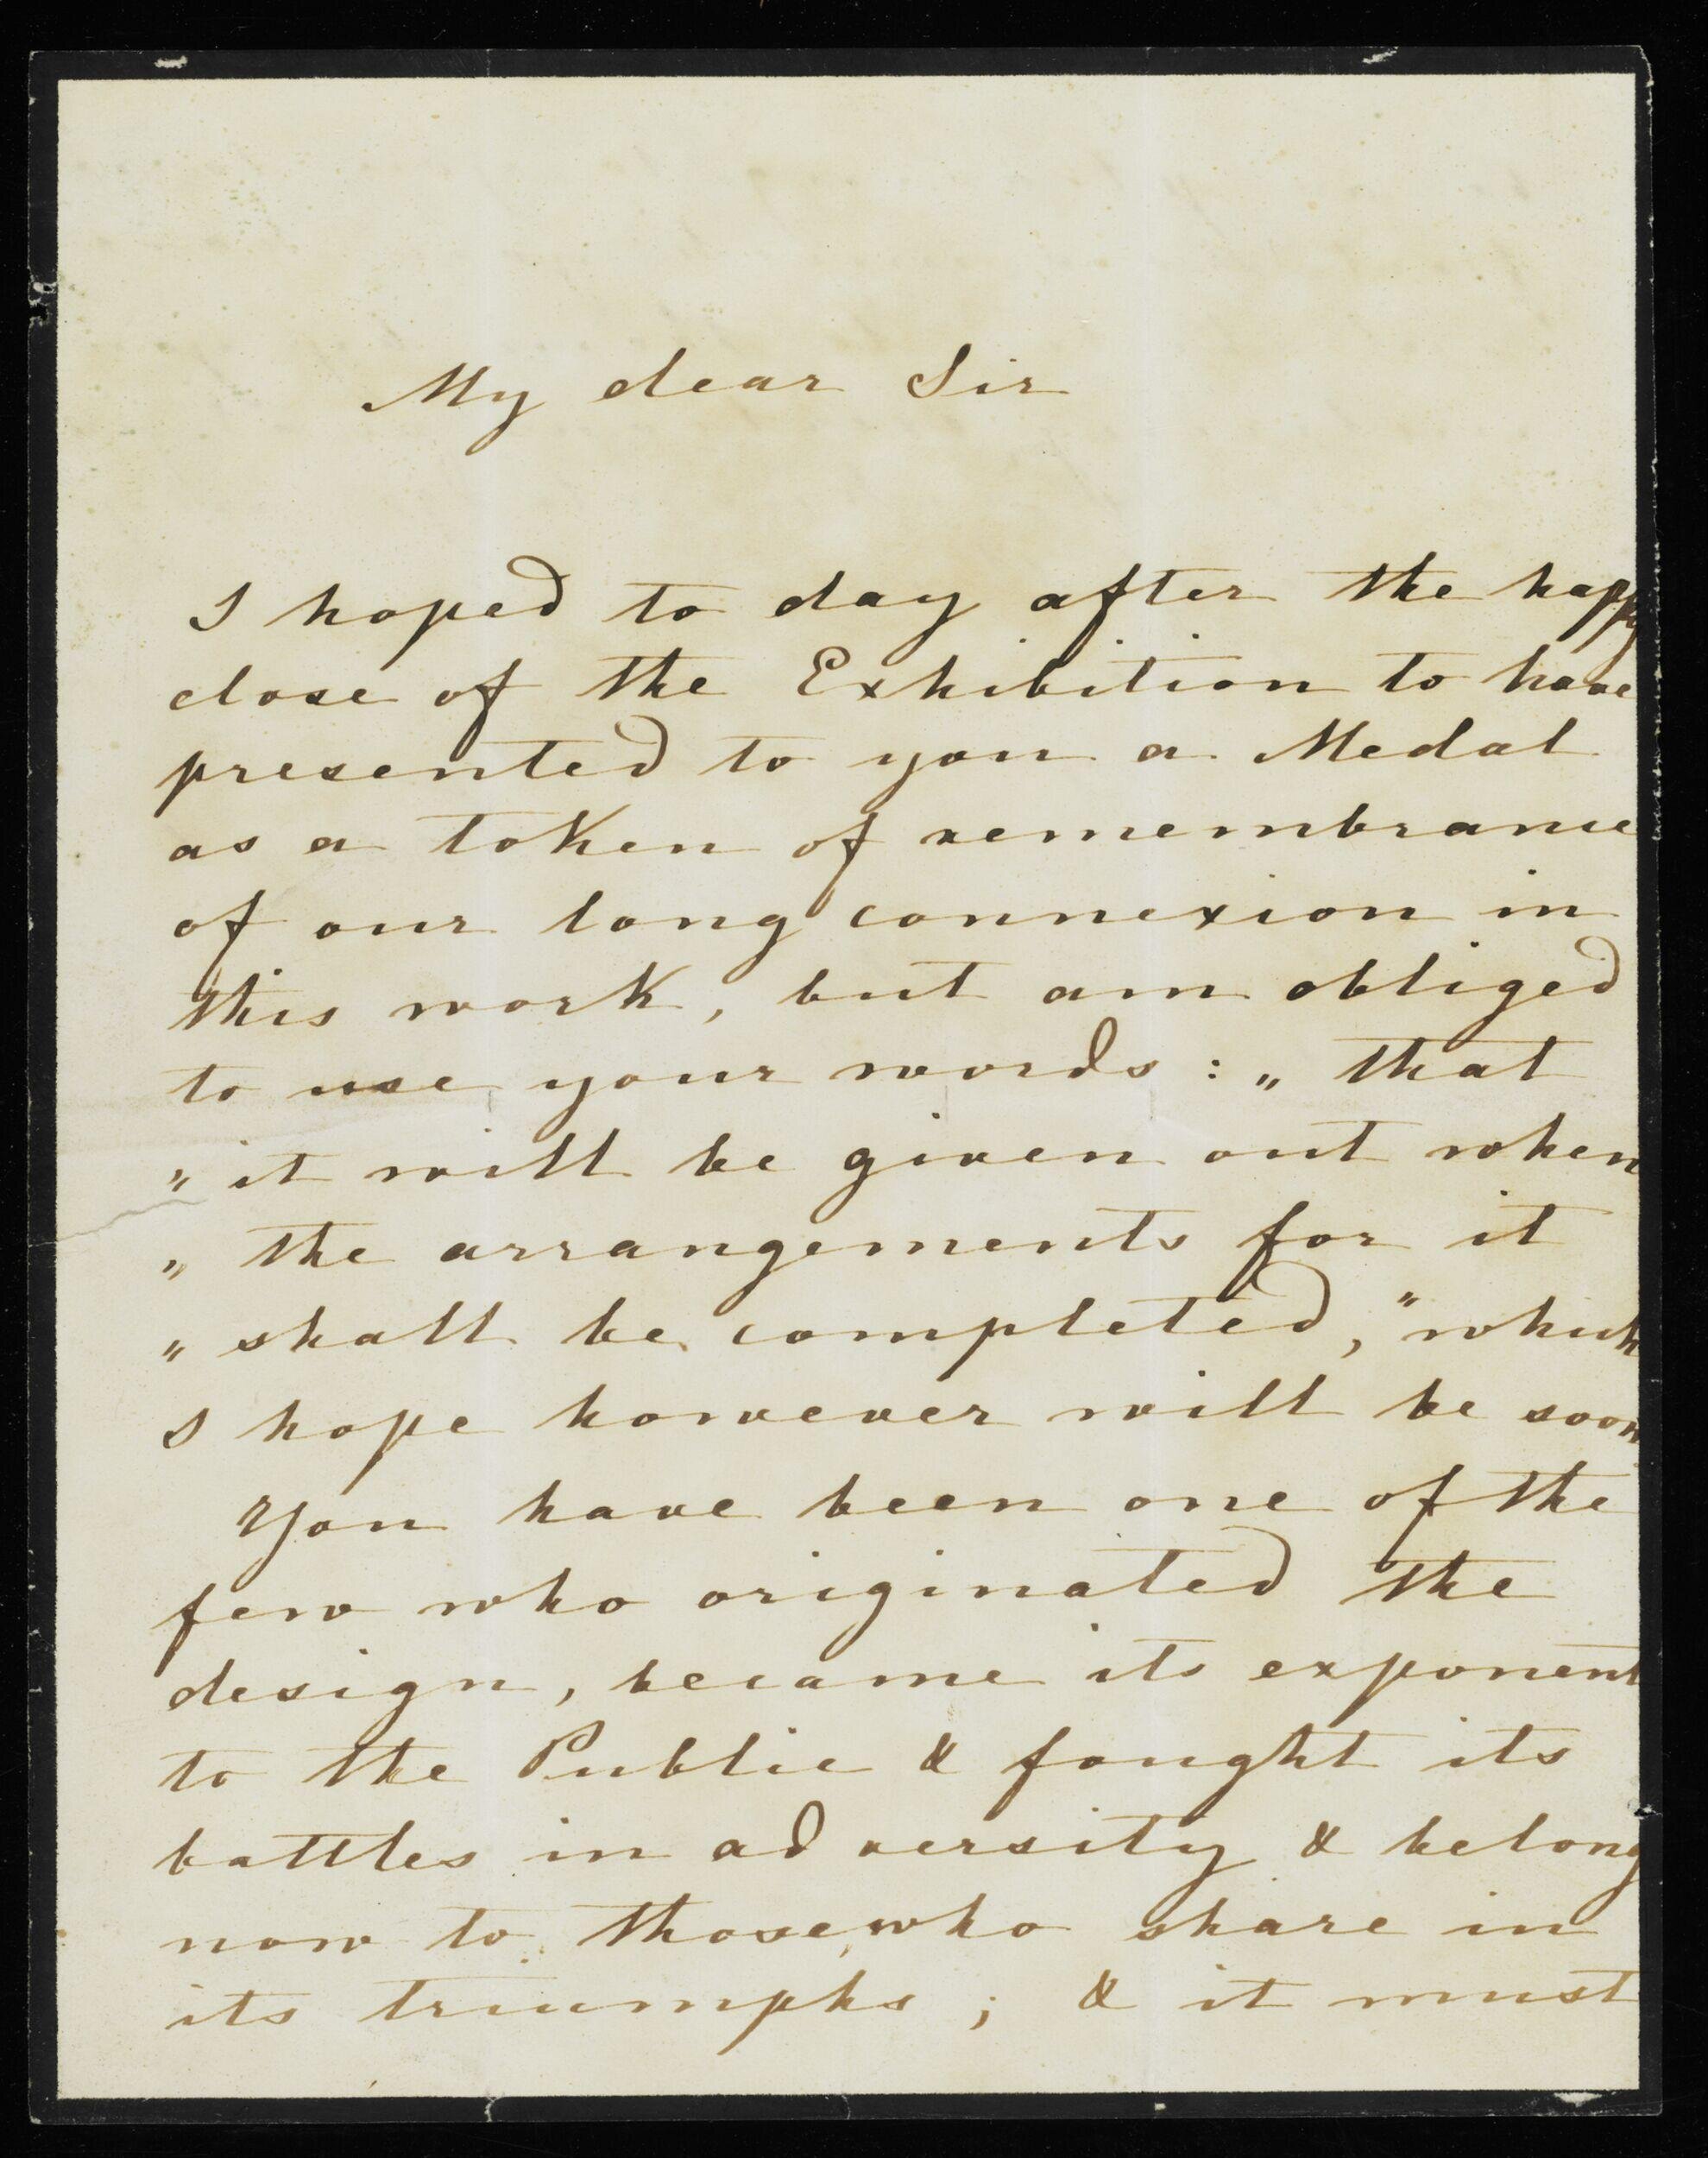 My dear Sir
I hoped to day after the happy
close of the Exhibition to have
presented to you a Medal
as a token of remembrance
of our long connexion in
this work, but am obliged
to use your words : „ that
„ it will be given out when
„ the arrangements for it
„ shall be completed," which
I hope however will be soon
You have been one of the
few who originated the
design, became its exponent
to the Public & fought its
battles in adversity & belong
now to those who share in
its triumphs ; & it must